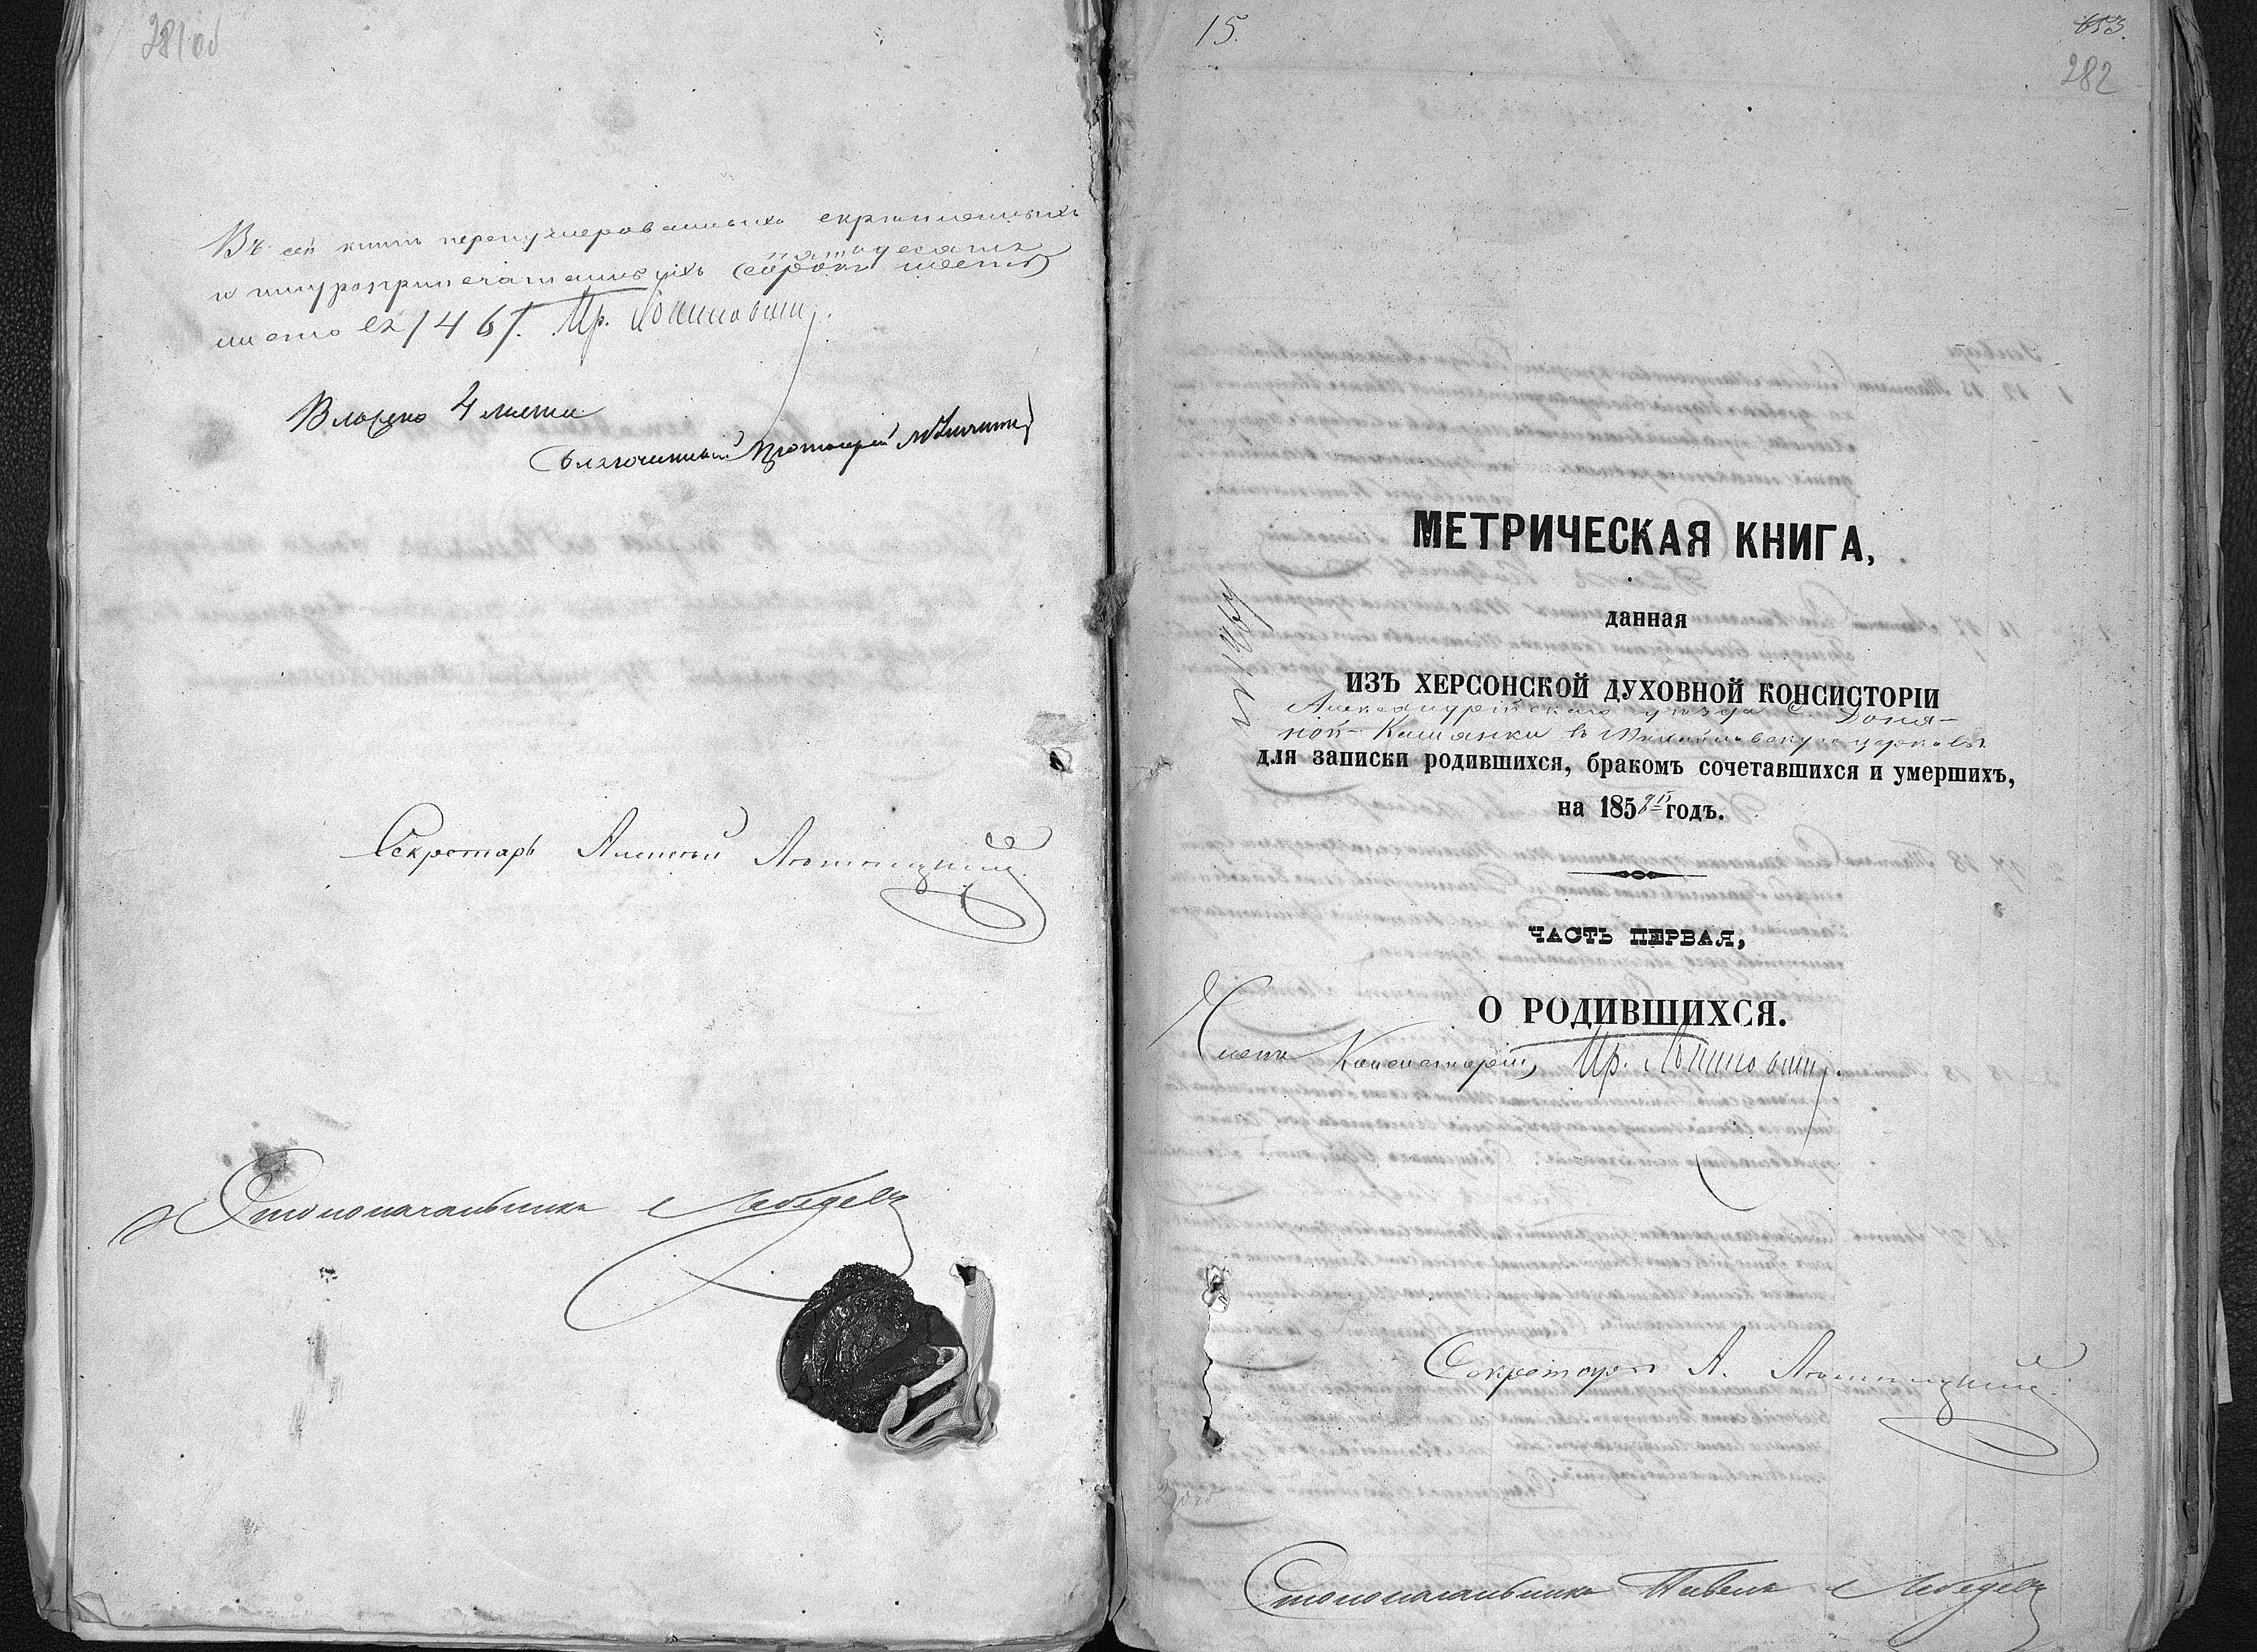 281 об
Въ сей книгѣ перенумерованныхъ скрѣпленныхъ
пятьдесятъ
и шнуроприпечатанныхъ (сорокъ шесть)
листовъ /46/. Пр.
Вложено 4 листа
Благочинный Протоіерей
Секретарь Алексѣй
Столоначальникъ Лебедевъ
15.
653.
282
МЕТРИЧЕСКАЯ КНИГА,
данная
ИЗЪ ХЕРСОНСКОЙ ДУХОВНОЙ КОНСИСТОРІИ
Александрійскаго уѣзда С. Доня-
ной-Камянки въ Михайловскую церковь
для записки родившихся, бракомъ сочетавшихся и умершихъ,
на 1859й годъ.
ЧАСТЬ ПЕРВАЯ,
О РОДИВШИХСЯ.
Членъ Консисторіи, Пр.
Секретарь А.
Столоначальникъ Павелъ Лебедевъ